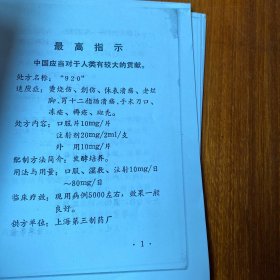 最高指示
中国应当对于人类有较大的贡献。
处方名称："920"
适应症：烫烧伤、创伤、体表溃疡、老烂
脚、胃十二指肠溃疡、手术刀口、
冻疮、褥疮、斑秃。
处方内容：口服片10mg/片
注射剂20mg/2ml/支
外 用10mg/片
配制方法简介：发酵培养。
用法与用量：口服、湿敷、注射10mg/日
～80mg/日
临床疗效：现用病例5000左右，效果一般
良好。
供方单位：上海第三制药厂
·1·